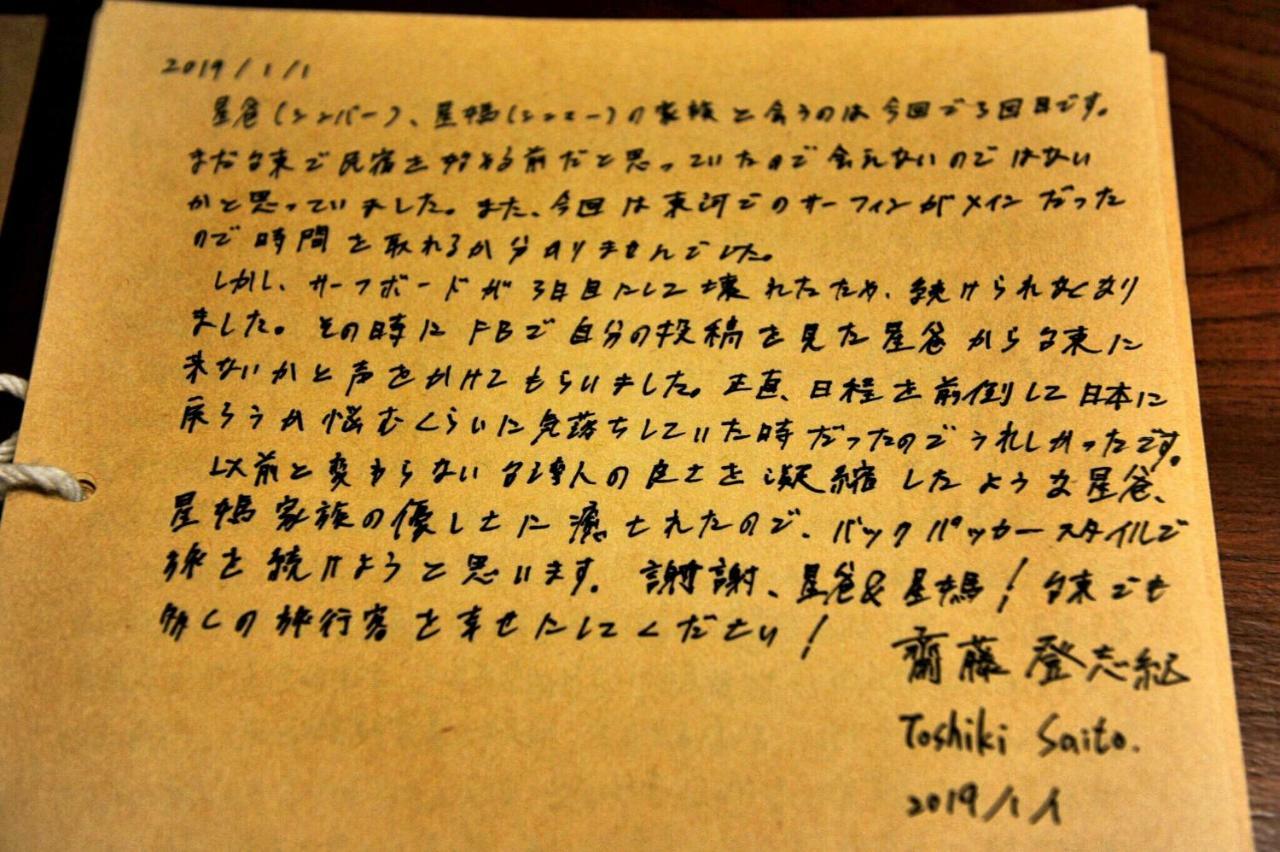 2019/1/1
星爸(シンバー)、星媽(シンマー)の家族と会うのは今回で3回目です。
まだ台東で民宿を始める前だと思っていたので会えないのではない
かと思っていました。また、今回は東河でのサーフィンがメインだった
ので時間を取れるか分かりませんでした。
しかし、サーフボードが3日目にして壊れたため、続けられなくなり
ました。その時にFBで自分の投稿を見た星爸から台東に
来ないかと声をかけてもらいました。正直、日程を前倒して日本に
戻ろうか悩むくらいに気落ちしていた時だったのでうれしかったです。
以前と変わらない台湾人の良さを凝縮したような星爸、
星媽家族の優しさに癒されたので、バックパッカースタイルで
旅を続けようと思います。謝謝、星爸&星媽!台東でも
多くの旅行客を幸せにしてください!
齋藤登志紀
Toshiki Saito.
2019/1/1